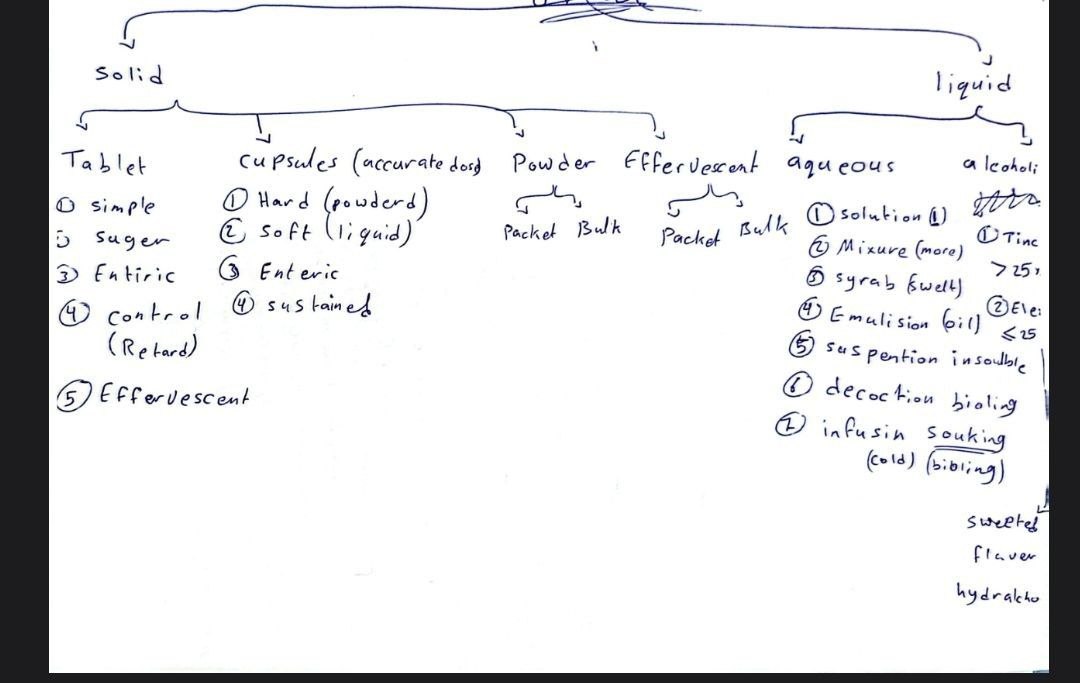 Solid
liquid
Tablet
cupsules (accurate dosg
Powder
Effervescent
aqueous
alcoholi
① simple
suger
③ Entiric
④ control
(Retard)
⑤ Effervescent
① Hard (powderd)
② soft (liquid)
③ Enteric
④ sustained
Packet Bulk
Packet Bulk
① solution (1)
② Mixure (more)
③ syrab (swelt)
④ Emulision (oil)
⑤ suspention insoulble
⑥ decoction bioling
⑦ infusin souking
(cold) (bibling)
① Tinc
> 25
② Ele
≤ 25
sweeted
flaver
hydralcho